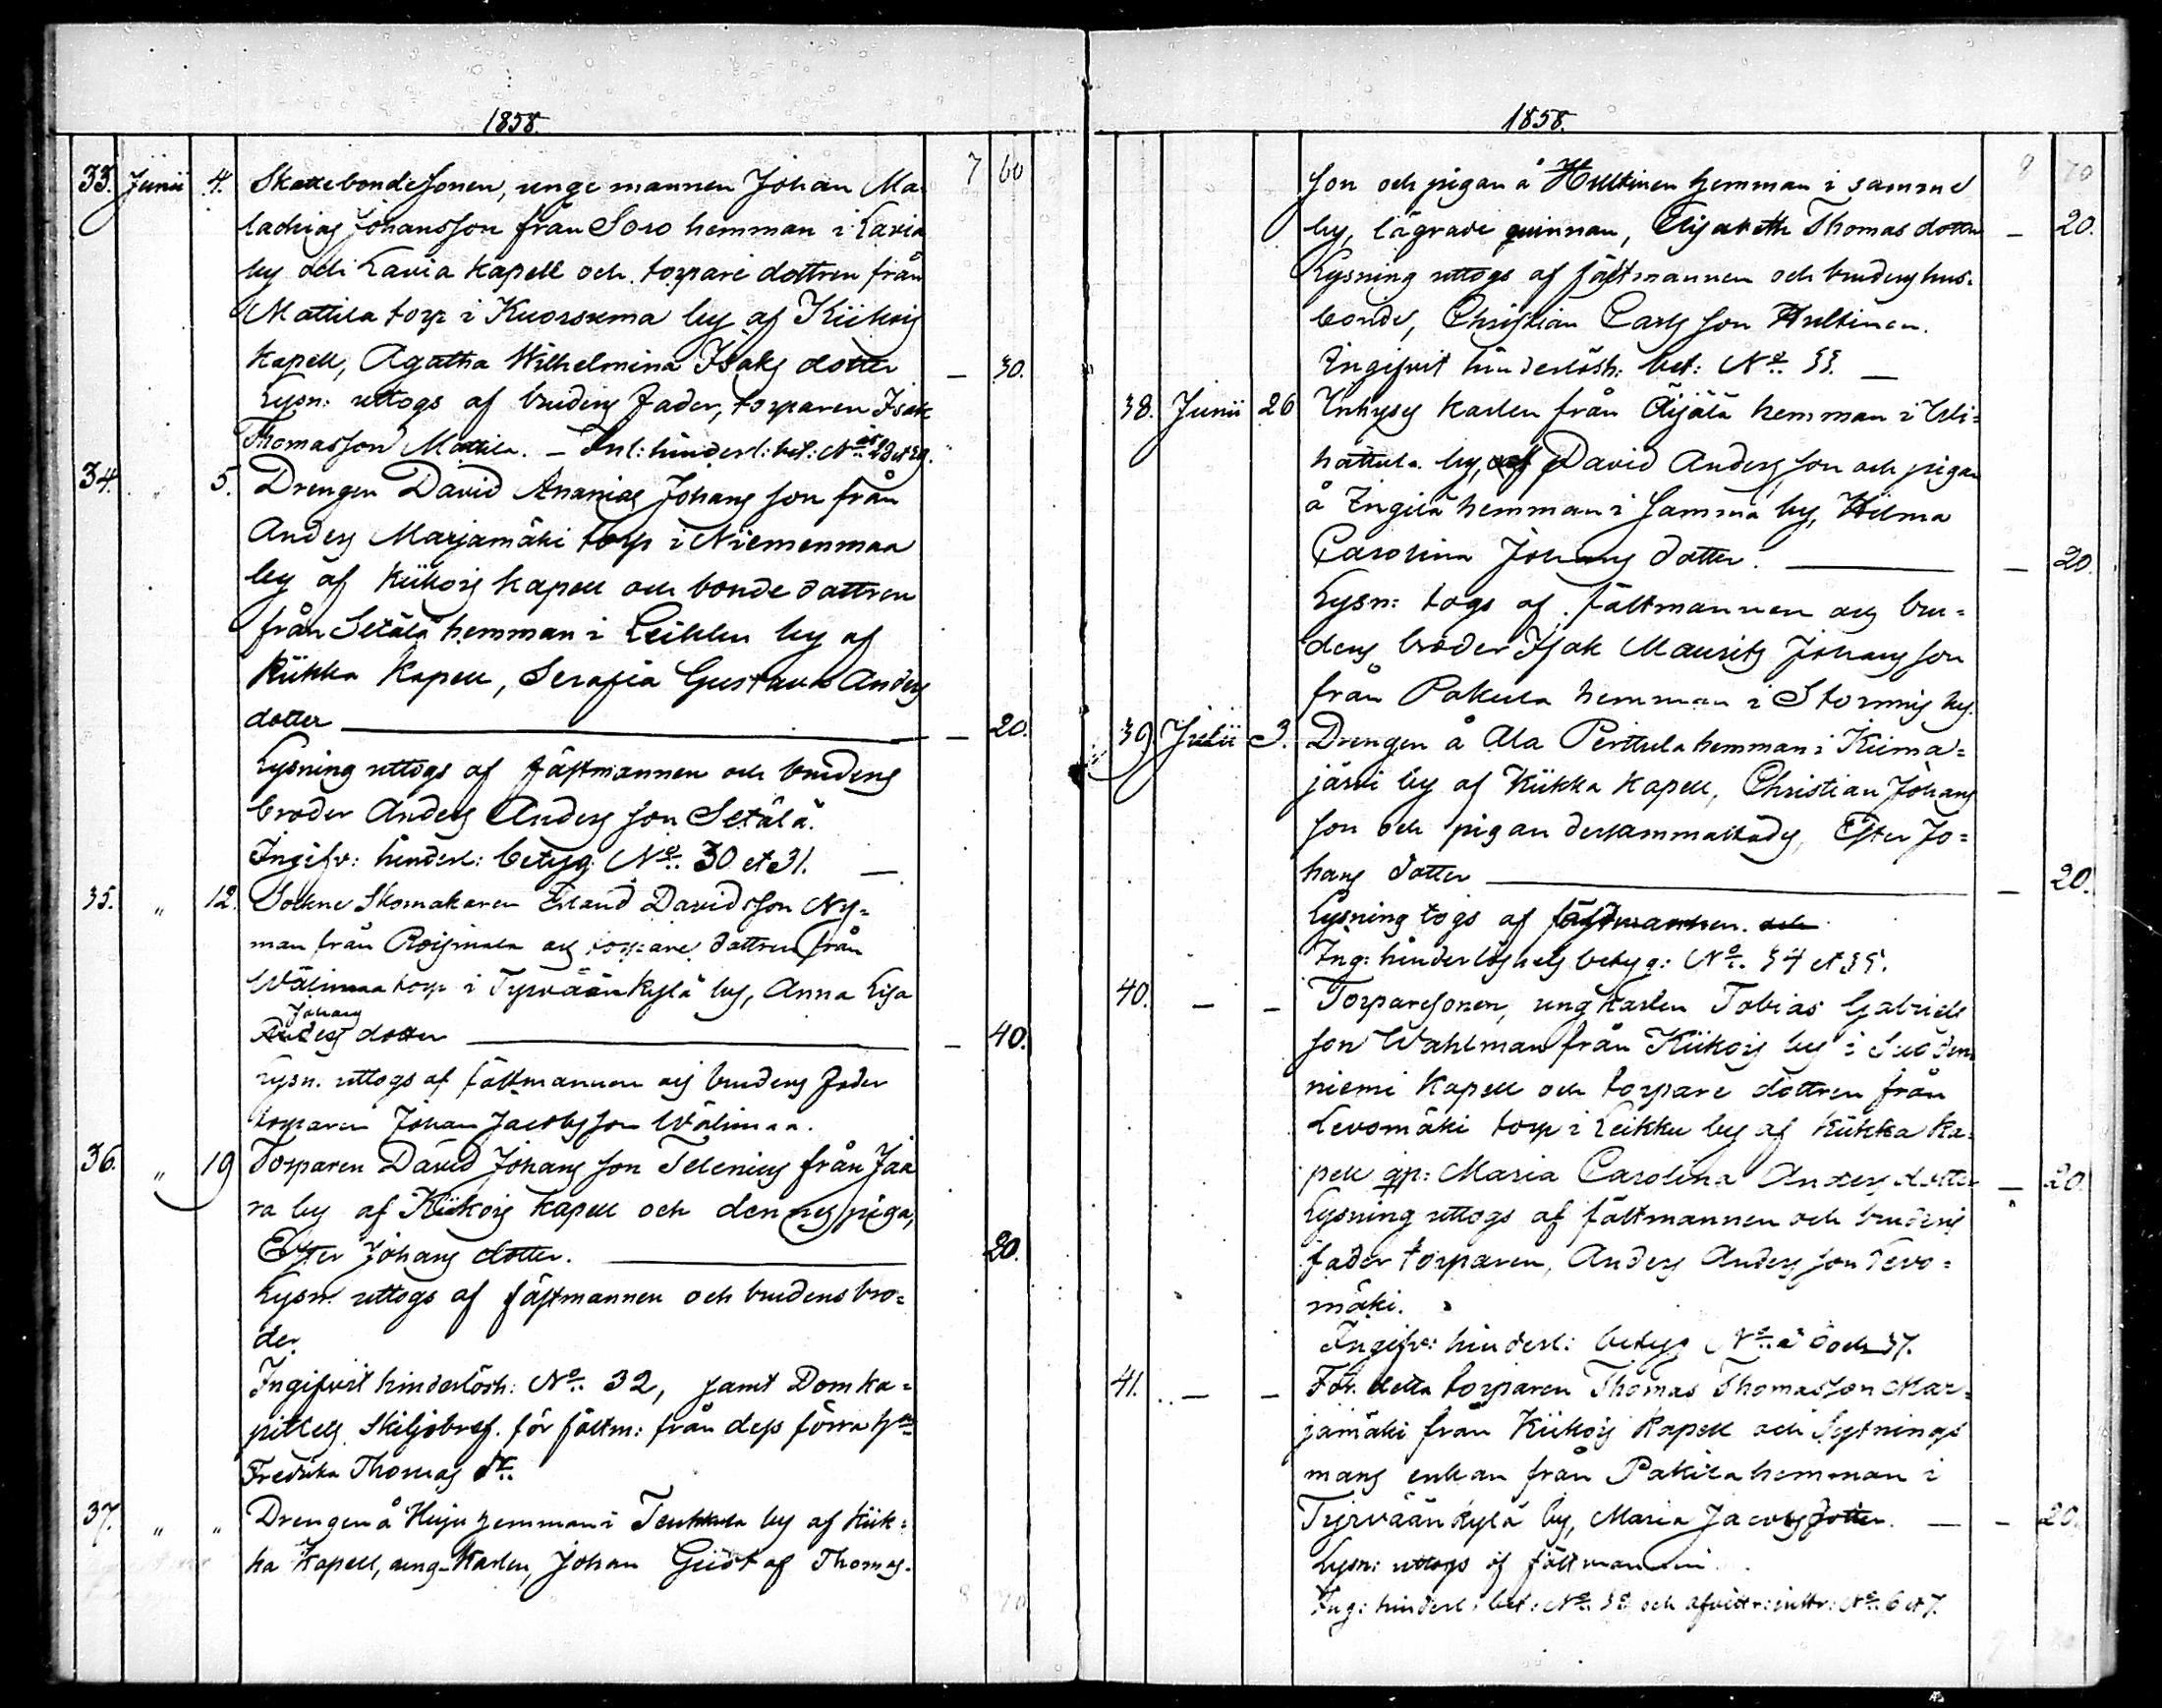 1858.
7 60
33. Junii 4. Skattebondesonen, unge mannen Johan Ma-
lachias Johansson från Soro hemman i Lavia
by och Lavia Kapell och torpare dottren från
Mattila torp i Kuorsuma by af Kiikois
Kapell, Agatha Wilhelmina Isaks dotter — 30.
Lysn: uttogs af brudens fader, torparen Isak
Thomasson Mattila. — Inl: hinderl: bet: No 28 et 29.
34. " 5. Drengen David Ananias Johans son från
Anders Marjamäki torp i Niemenmaa
by af Kiikois kapell och bonde dottren
från Setälä hemman i Leikku by af
Kiikka Kapell, Serafia Gustava Anders
dotter — 20.
Lysning uttogs af fästmannen och brudens
broder Anders Anders son Setälä.
Ingifv: hinderl: betyg No. 30 et 31. —
35. " 12. Sockne Skomakaren Erland Davidsson Ny-
man från Roismala och torpare dottren från
Wälimaa torp i Tyrväänkylä by, Anna Lisa
Johans
Anders dotter — 40.
Lysn. uttogs af fästmannen och brudens fader
torparen Johan Jacobsson Wälimaa.
36. " 19 Torparen David Johans son Telenius från Jaa
ra by af Kiikois Kapell och dennes piga,
Ester Johans dotter. 20.
Lysn. uttogs af fästmannen och brudens bro-
der
Ingifvit hinderlösh: No. 32, samt Domka-
pitlets Skiljobref. för fästm: från dess förra h
Fredrika Thomas dr.
37. " " Drengen å Huju hemman i Teukkula by af Kiik-
ka Kapell, ung-Karlen, Johan Gustaf Thomas-
8 70
1858.
8 70
son och pigan å Hultinen hemman i samme
by, lägrade quinnan, Elisabeth Thomas dotter — 20.
Lysning uttogs af fästmannen och brudens hus-
bonde, Christian Carls son Hultinen.
Ingifvit hinderlösh: bet: No. 33. —
38. Junii 26 Inhyses Karlen från Äijälä hemman i Illi-
hattula by, af David Anders son och pigan
å Ingilä hemman i samma by, Wilma
Carolina Johans dotter. — 20.
Lysn: togs af fästmannen och bru-
dens broder Isak Maurits Johans son
från Pakula hemman i Stormis by.
39 Julii 3. Drengen å Ala Perttula hemman i Kiima-
järvi by af Kiikka Kapell, Christian Johans
son och pigan dersammastädes, Ester Jo-
hans dotter — 20.
Lysning togs af fästmannen. och
Ing: hinderlöshets betyg: No. 34 et 35.
40. — — Torparesonen, ungkarlen Tobias Gabriels
son Wahlman från Kiikois by i Suoden
niemi Kapell och torpare dottren från
Levomäki torp i Leikku by af Kiikka Ka-
pell qp: Maria Carolina Anders dotter — 20.
Lysning uttogs af fästmannen och brudens
fader torparen, Anders Anders son Levo-
mäki.
Ingifv: hinderl: betyg No. och 37.
41. — — För detta torparen Thomas Thomasson Mar-
jamäki från Kiikois Kapell och Sytnings
mans enkan från Pakila hemman i
Tyrväänkylä by, Maria Jacobs dotter. — 20.
Lysn: uttogs af fästmannen.
Ing: hinderl: bet: No. 38 och afvittr: inttr: No. 6 et 7.